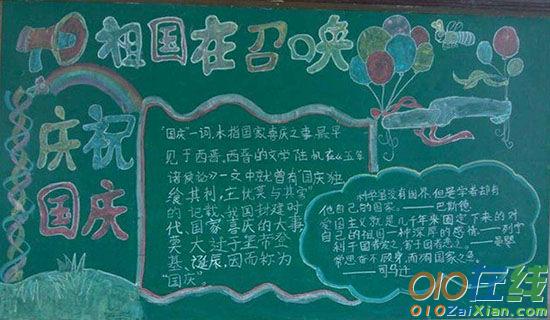 祖国在召唤
庆祝
国庆
“国庆”一词,本指国家喜庆之事,最早
见于西晋。西晋的文学陆机在《五等
诸侯论》一文中就曾有“国庆独
飨其利,主忧莫与其害”
的记载、我国封建时
代、国家喜庆的大事
莫大过于皇帝登
基、诞辰,因而称为
“国庆”。
科学虽没有国界,但是学者却有
他自己的国家。——巴斯德
爱国主义就是几千年来固定下来的对
自己的祖国一种深厚的感情。——列宁
利于国者爱之,害于国者恶之。——晏婴
常思奋不顾身,而殉国家之急。
——司马迁
010在线
010ZaiXian.com